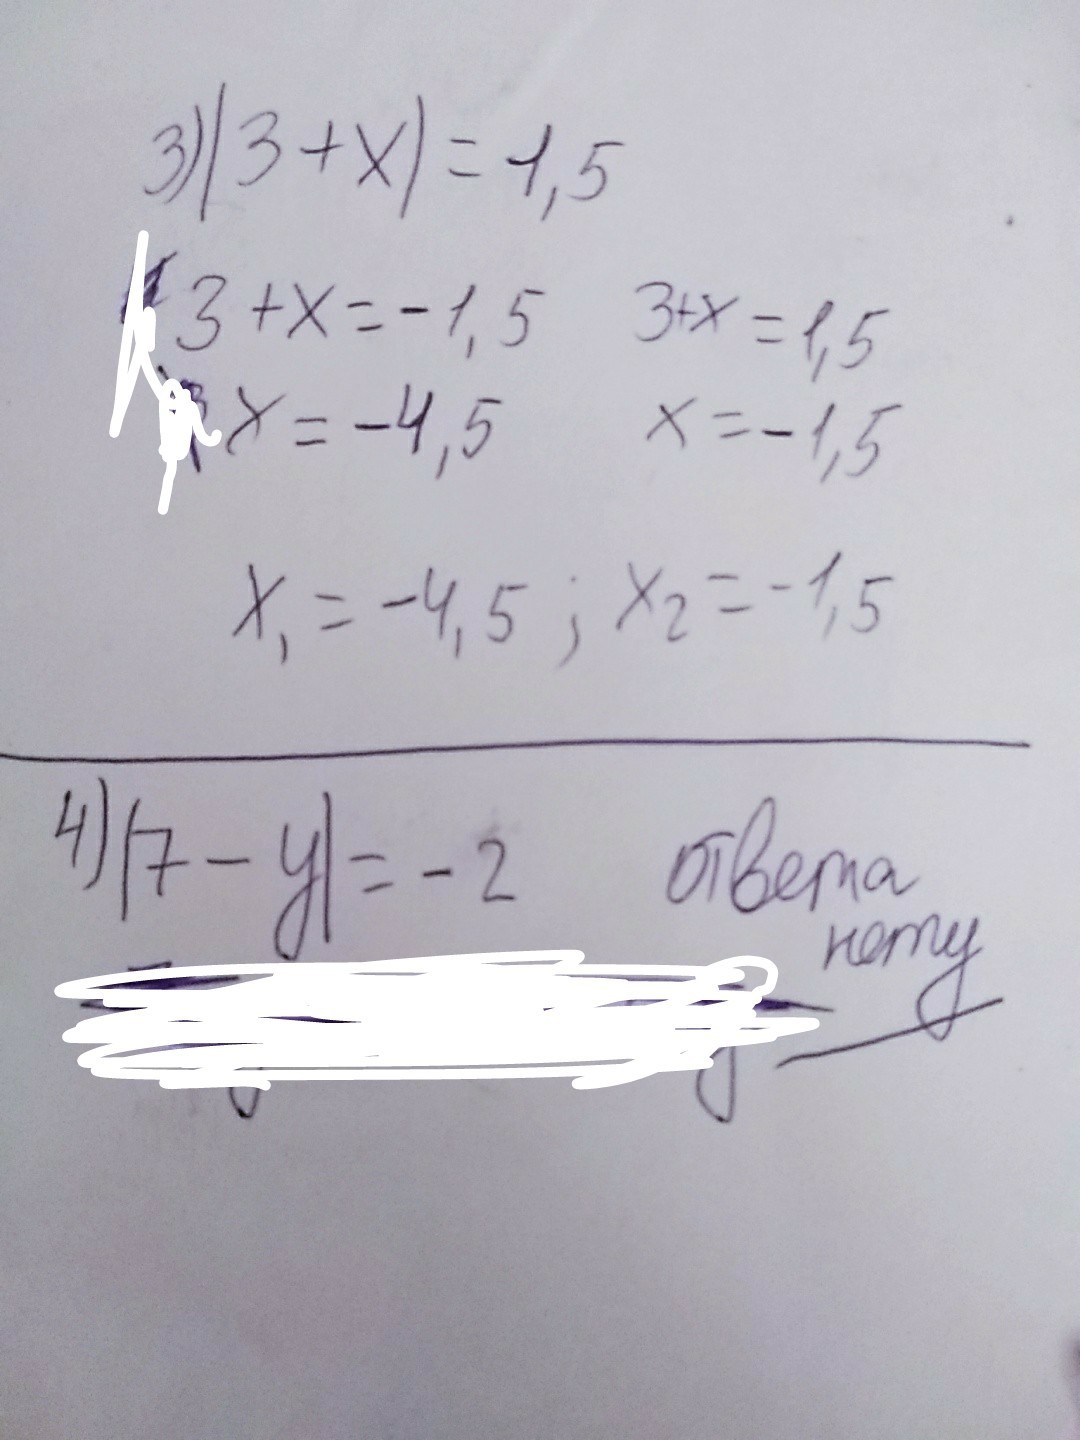 3) |3 + x| = 1,5
3 + x = -1,5 3+x = 1,5
x = -4,5 x = -1,5
x₁ = -4,5 ; x₂ = -1,5
4) |7 - y| = -2 ответа
нету